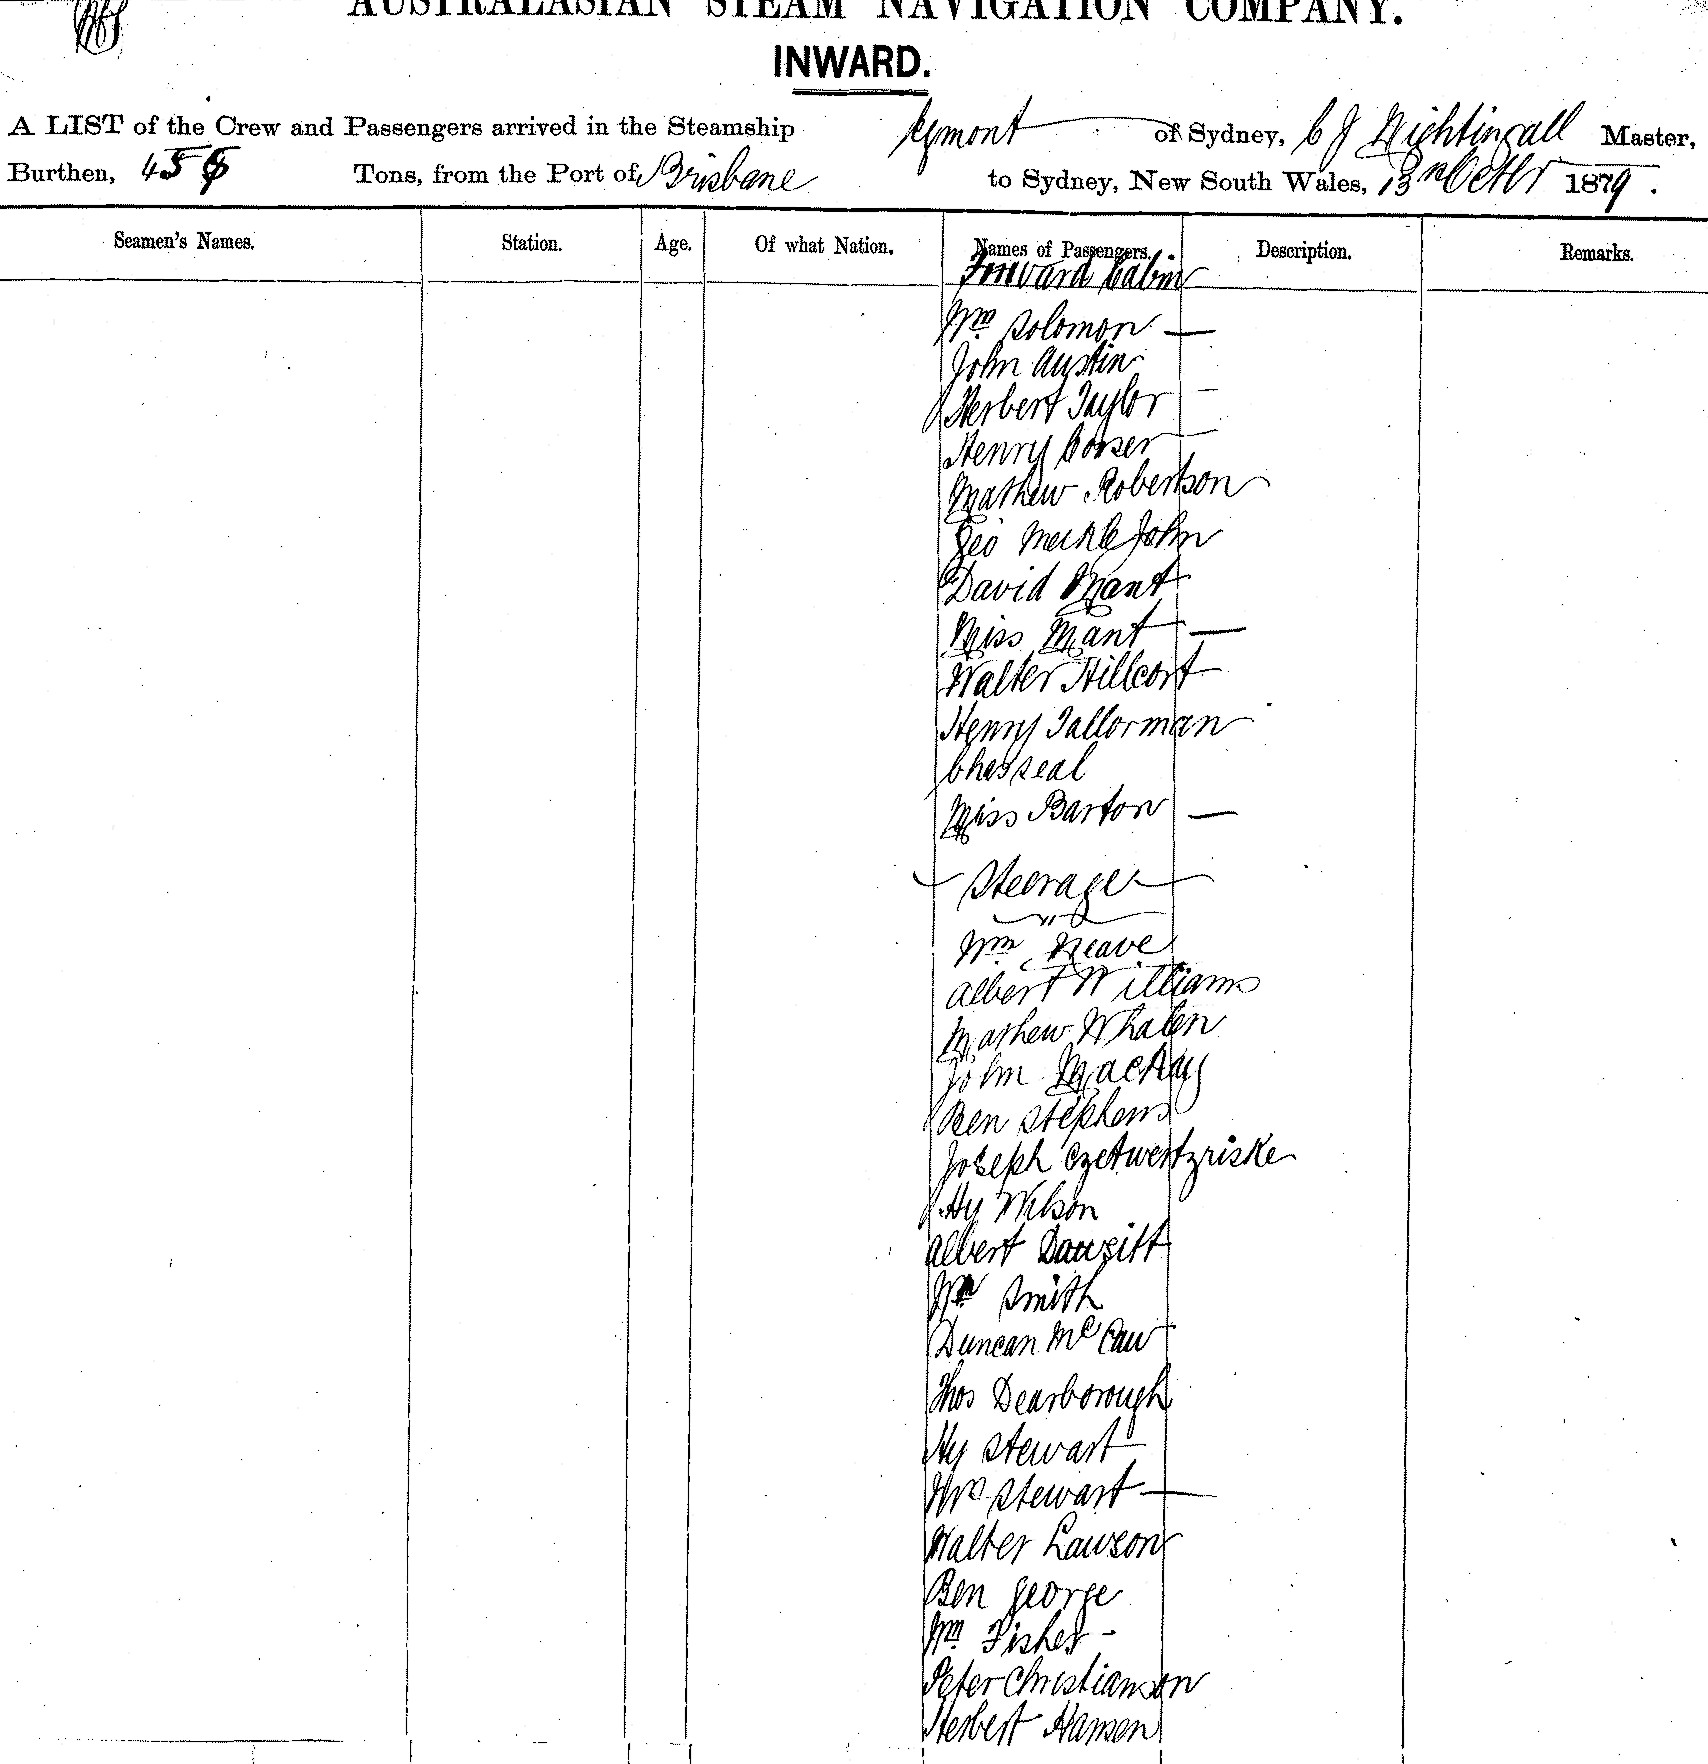 AUSTRALASIAN STEAM NAVIGATION COMPANY.
INWARD.
A LIST of the Crew and Passengers arrived in the Steamship Egmont of Sydney, C J Nightingall Master,
Burthen, Tons, from the Port of Brisbane to Sydney, New South Wales, 13th Octbr 1879.
Seamen's Names. Station. Age. Of what Nation. Names of Passengers. Description. Remarks.
Forward Cabin
Wm Solomon —
John Austin
Herbert Taylor
Henry Corser
Mathew Robertson
Geo MeikleJohn
David Mant
Miss Mant —
Walter Hillcort
Henry Tallorman
Chas Seal
Miss Barton —
Steerage
Wm Neave
Albert Williams
Mathew Whalen
John MacKay
Ben Stephens
Joseph Czetwertzriske
Hy Wilson
Albert
Smith
Duncan McCaw
Thos Dearborough
Hy Stewart
Mrs Stewart —
Walter Lawson
Ben George
Wm Fisher -
Peter Christianson
Herbert Hansen